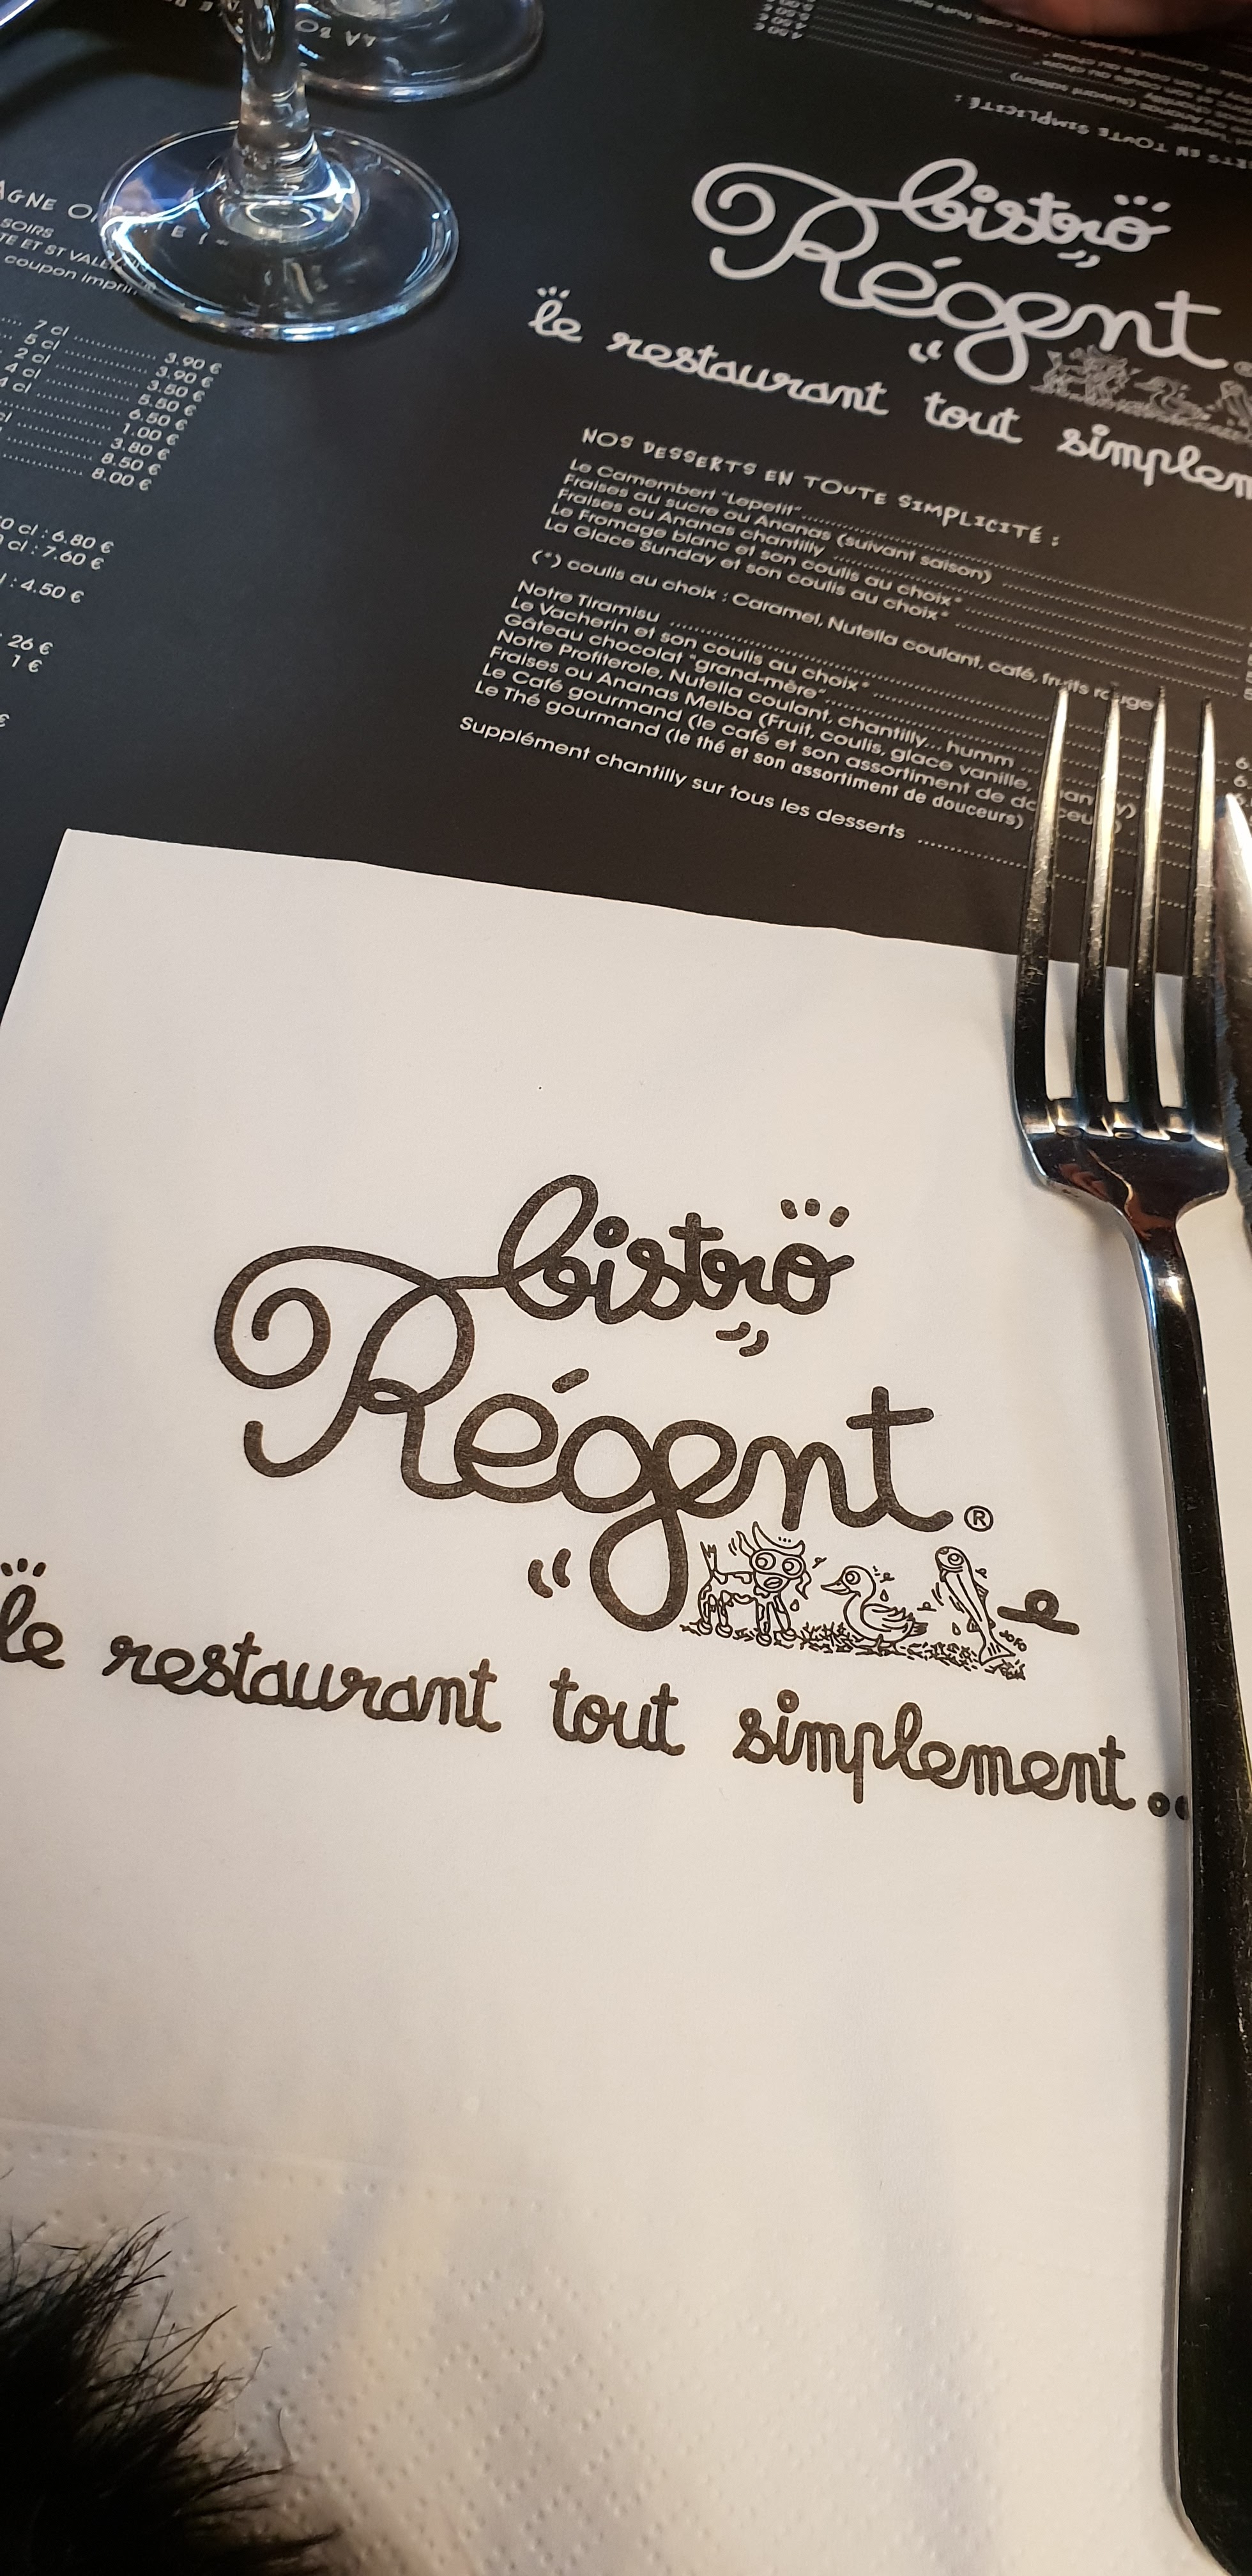 bistro
Régent
le restaurant tout simplem
NOS DESSERTS EN TOUTE SIMPLICITÉ :
Le Camembert "Lepetit"
Fraises au sucre ou Ananas (suivant saison)
Fraises ou Ananas chantilly
Le Fromage blanc et son coulis au choix*
La Glace Sunday et son coulis au choix*
(*) coulis au choix : Caramel, Nutella coulant, café, fruits rouge
Notre Tiramisu
Le Vacherin et son coulis au choix*
Gâteau chocolat "grand-mère"
Notre Profiterole, Nutella coulant, chantilly... humm
Fraises ou Ananas Melba (Fruit, coulis, glace vanille,
Le Café gourmand (le café et son assortiment de
Le Thé gourmand (le thé et son assortiment de douceurs)
Supplément chantilly sur tous les desserts
SOIRS
TE ET ST VAL
coupon impri
7 cl 3.90 €
5 cl 3.90 €
2 cl 3.50 €
4 cl 5.50 €
4 cl 6.50 €
1.00 €
3.80 €
8.50 €
8.00 €
0 cl : 6.80 €
cl : 7.60 €
: 4.50 €
26 €
1 €
€
bistro
Régent®
JOFO
le restaurant tout simplement..